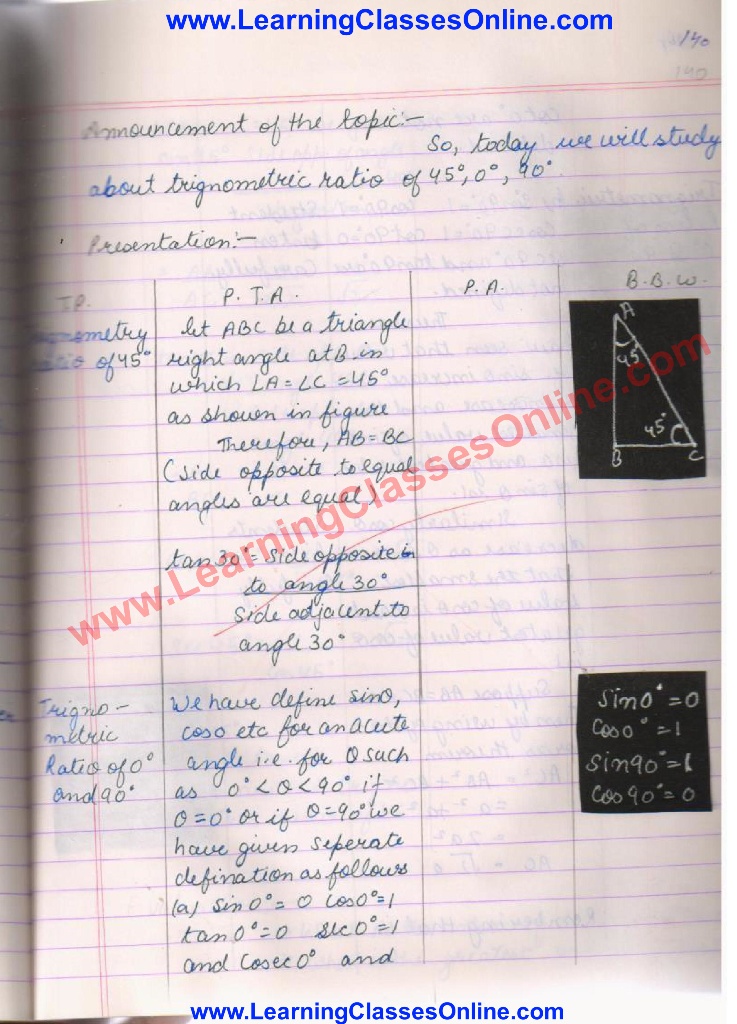 www.LearningClassesOnline.com
140
140
Announcement of the topic:-
So, today we will study
about trignometric ratio of 45°, 0°, 90°.
Presentation:-
T.P.
P. T. A.
P. A.
B. B. W.
Trignometry
ratio of 45°
let ABC be a triangle
right angle at B in
which LA = LC = 45°
as shown in figure
Therefore, AB = BC
(side opposite to equal
angles are equal)
tan 30° = Side opposite
to angle 30°
Side adjacent to
angle 30°
A
45°
45°
B
C
www.LearningClassesOnline.com
Trigno-
metric
Ratio of 0°
and 90°
We have define sinθ,
cosθ etc for an acute
angle i.e. for θ such
as 0° < θ < 90° if
θ = 0° or if θ = 90° we
have given seperate
defination as follows
(a) sin 0° = 0 cos 0° = 1
tan 0° = 0 sec 0° = 1
and Cosec 0° and
Sin 0° = 0
Cos 0° = 1
Sin 90° = 1
Cos 90° = 0
www.LearningClassesOnline.com